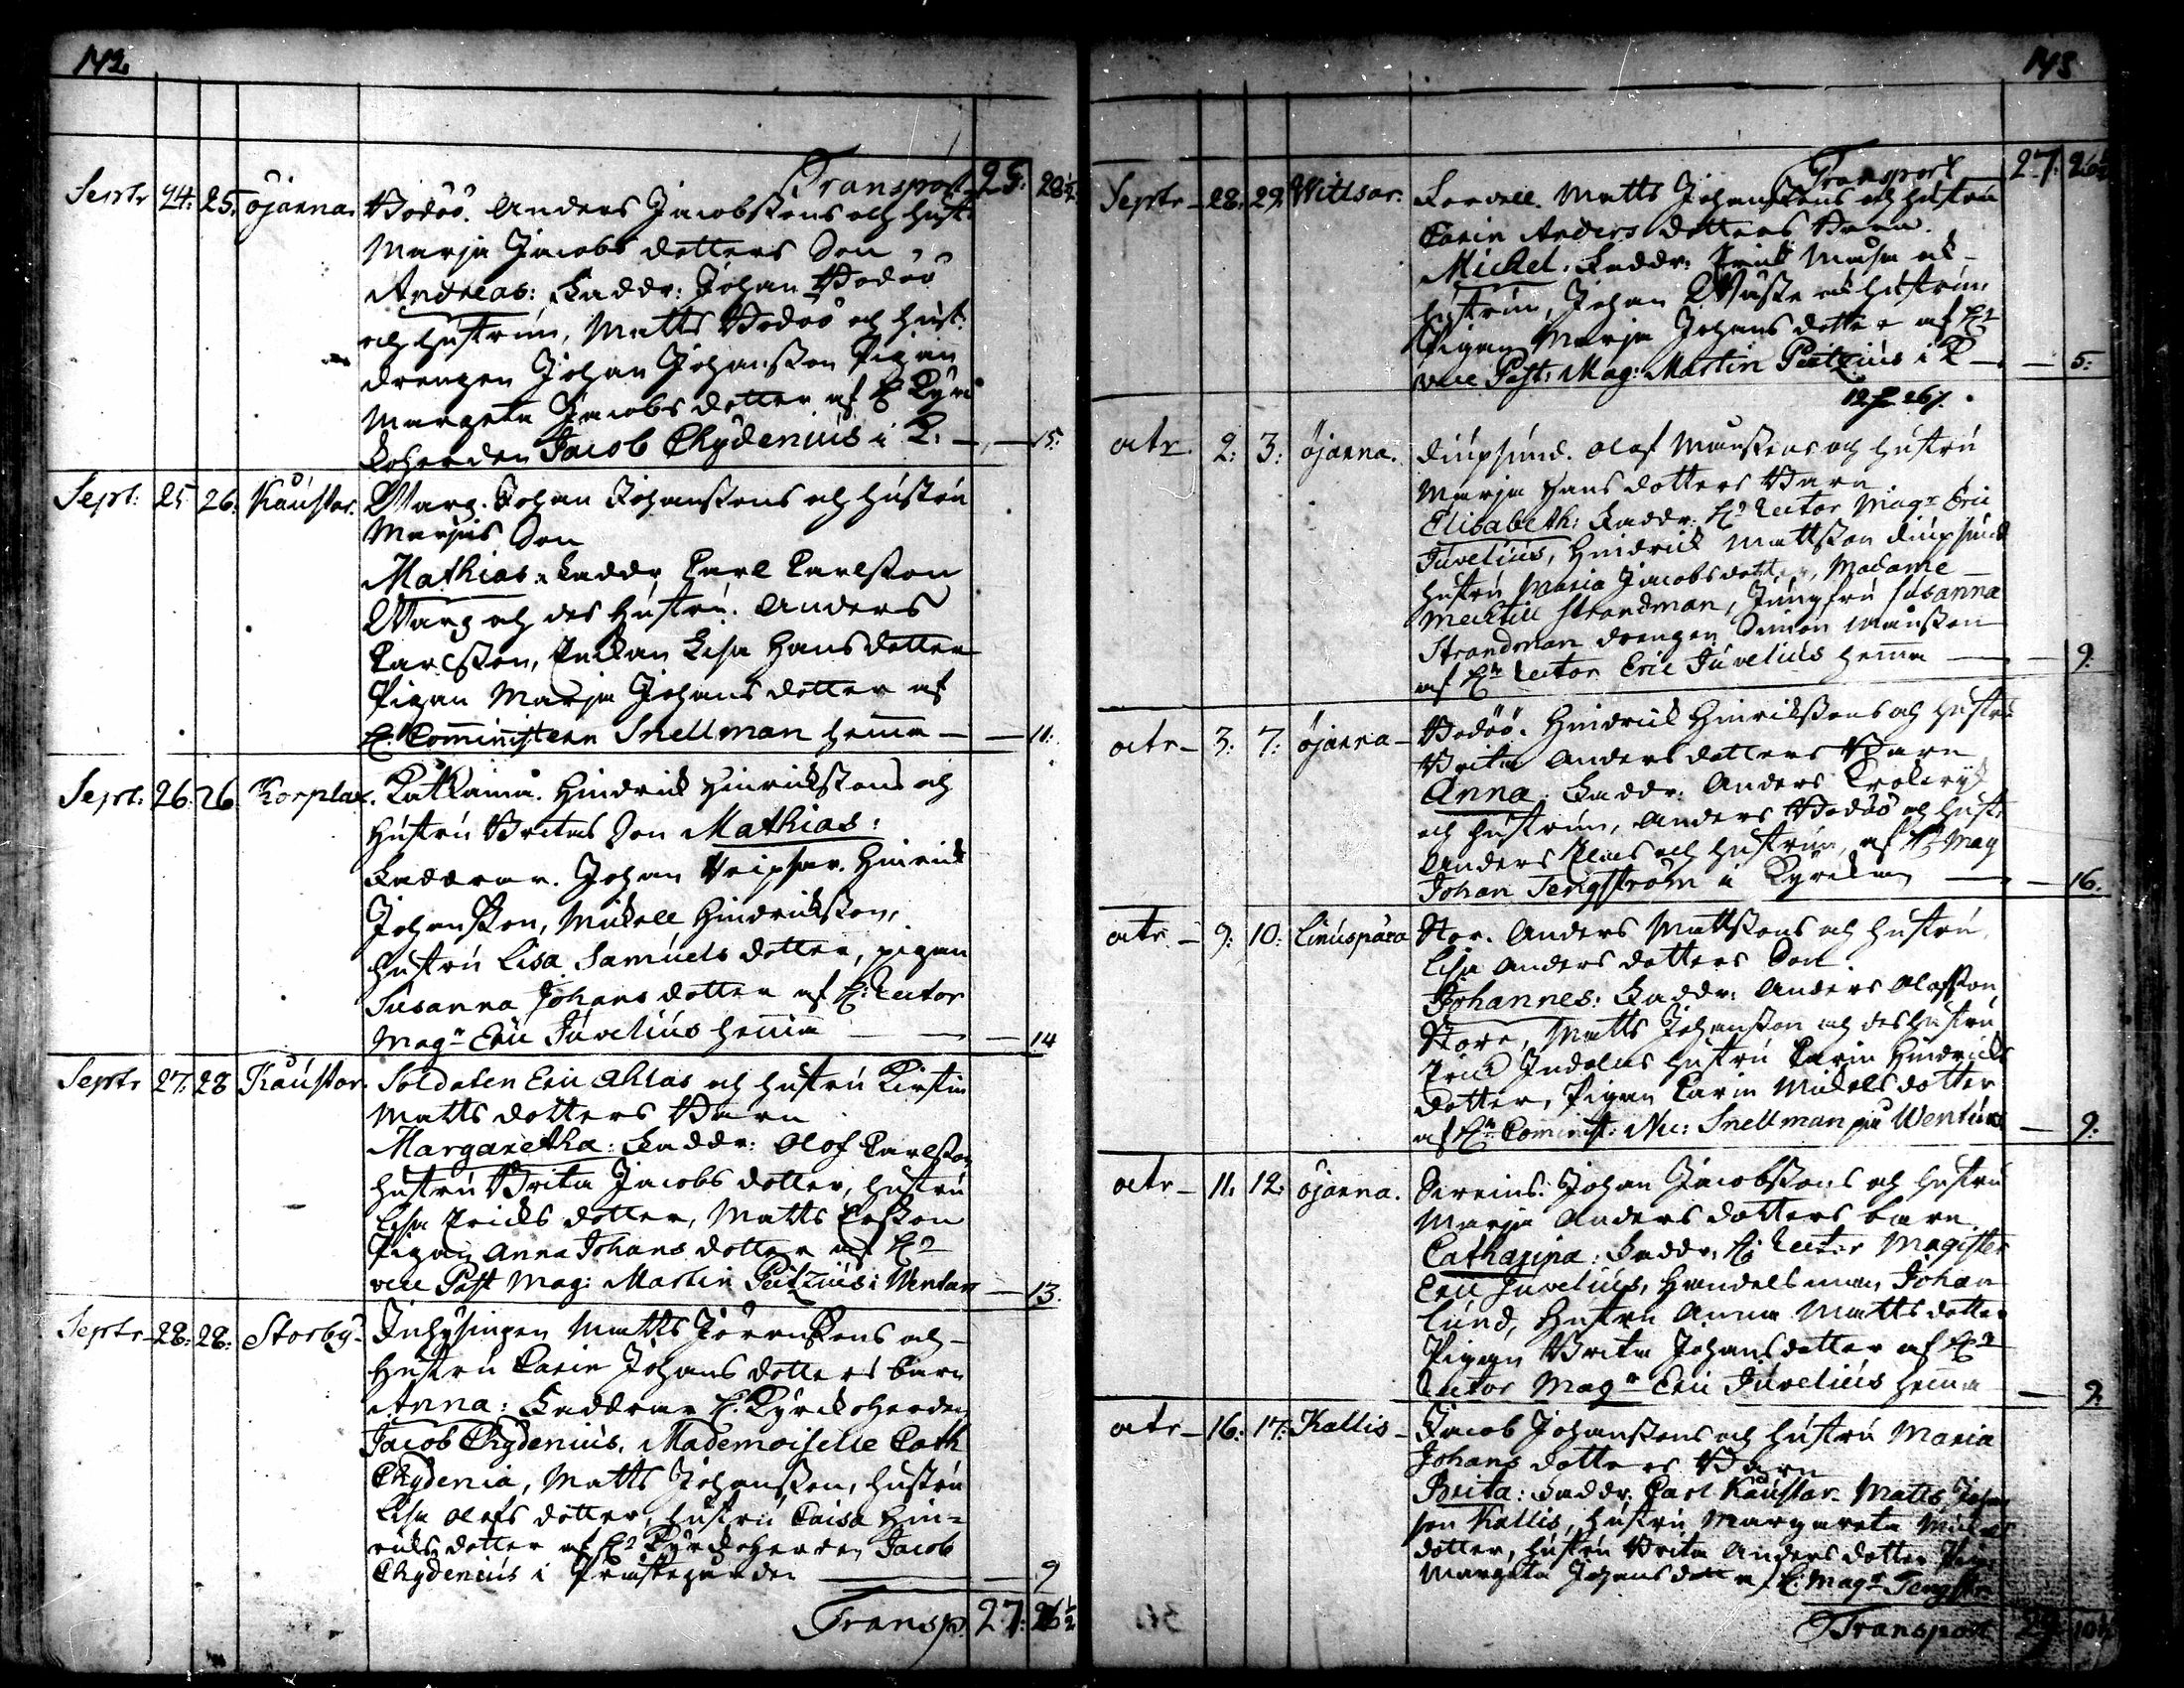 142.
Transport 25: 28½
Septr 24. 25. öjanna. Bodöö. Anders Jacobssons och hust.
Marja Jacobs dotters Son
Andreas: Faddr: Johan Bodöö
och hustrun, Matts Bodöö och hust.
drengen Johan Johansson Pigan
Margeta Jacobs dotter af H Kyr
koherden Jacob Chydenius i K. — 15.
Sept: 25 26. Kaustar. Warg. Johan Johanssons och hustru
Marjas Son
Mathias: Faddr. Carl Carlsson
Warg och des hustru. Anders
Carlsson, Enkan Lisa Hansdotter
Pigan Marja Johansdotter af
H. Comministern Snellman hemma — 11.
Sept: 26. 26. Korplax. Katkama. Hindrich Hinrichssons och
hustru Britas Son Mathias:
Faddrar. Johan Hinrich
Johansson, Mickell Hindrichsson,
hustru Lisa Samuels dotter, pigan
Susanna Johans dotter af H: Rector
Magr Eric Juvelius hemma — 14
Septr 27. 28 Kaustar. Soldaten Eric Ahlas och hustru Kirstin
Matts dotters Barn
Margaretha: Faddr: Olof Carlsson
hustru Brita Jacobs dotter, hustru
Lisa Erichs dotter, Matts Ersson
Pigan Anna Johans dotter af Hr
vice Past Mag: Martin Peitzius i Wentus — 13.
Septr 28: 28: Storby. Inhysingen Matts Jöranssons och
Hustru Carin Johans dotters barn
Anna: Faddrar H. Kyrckoherden
Jacob Chydenius, Mademoiselle Cath
Chydenia, Matts Johansson, hustru
Lisa Olofs dotter, hustru Caisa Hin=
richs dotter af Hr Kyrckoherden Jacob
Chydenius i Prästegården — 9
Transp. 27: 26½
143
Transport 27. 26½
Septr 28. 29. Wittsar. Matts Johanssons och hustru
Carin Anders dotters Barn.
Michel: Faddr: Erich och
hustrun, Johan och hustrun
Pigan Marja Johans dotter af Hr
vice Past: Mag: Martin Peitzius i K — 5.
octr. 2. 3. öjanna. Diupsund. Olof Månssons och hustru
Marja Hans dotters Barn.
Elisabeth: Faddr: Hr Rector Magr Eric
Juvelius, Hindrich Mattsson Diupsund
hustru Maria Jacobsdotter, Madame
Strandman, Jungfru Susanna
Strandman drengen Simon Månsson
af Hr Rector Eric Juvelius hemma — 9.
octr. 3. 7. öjanna. Bodöö. Hindrich Hinrichssons och hustru
Brita Anders dotters Barn
Anna: Faddr: Anders
och hustrun, Anders Bodöö och hust.
Anders och hustrun, af Hr Mag
Johan Tengström i Kyrckan — 16.
octr. 9. 10. Linuspära Stor. Anders Mattssons och hustru
Lisa Anders dotters Son
Johannes: Faddr: Anders Olofsson
Store, Matts Johansson och des hustru
Erich hustru Carin Hindrichs
dotter, Pigan Carin Mickelsdotter
af Hr Commist: Nic: Snellman på Wentus — 9.
octr 11. 12. öjanna. Johan Jacobssons och hustru
Marja Anders dotters barn
Catharina: Faddr. H: Rector Magister
Eric Juvelius, Handelsman Johan
Lund, Hustru Anna Matts dotter
Pigan Brita Johansdotter af Hr
Rector Magr Eric Juvelius hemma — 9.
octr 16. 17. Kallis Jacob Johanssons och hustru Maria
Johans dotters Barn
Brita: Faddr. Carl Kaustar. Matts Johans
son Kallis, hustru Margareta Mickels
dotter, hustru Brita Anders dotter Pig.
Margeta Johans dotter af H. Magr Tengstr.
Transport 29 10½